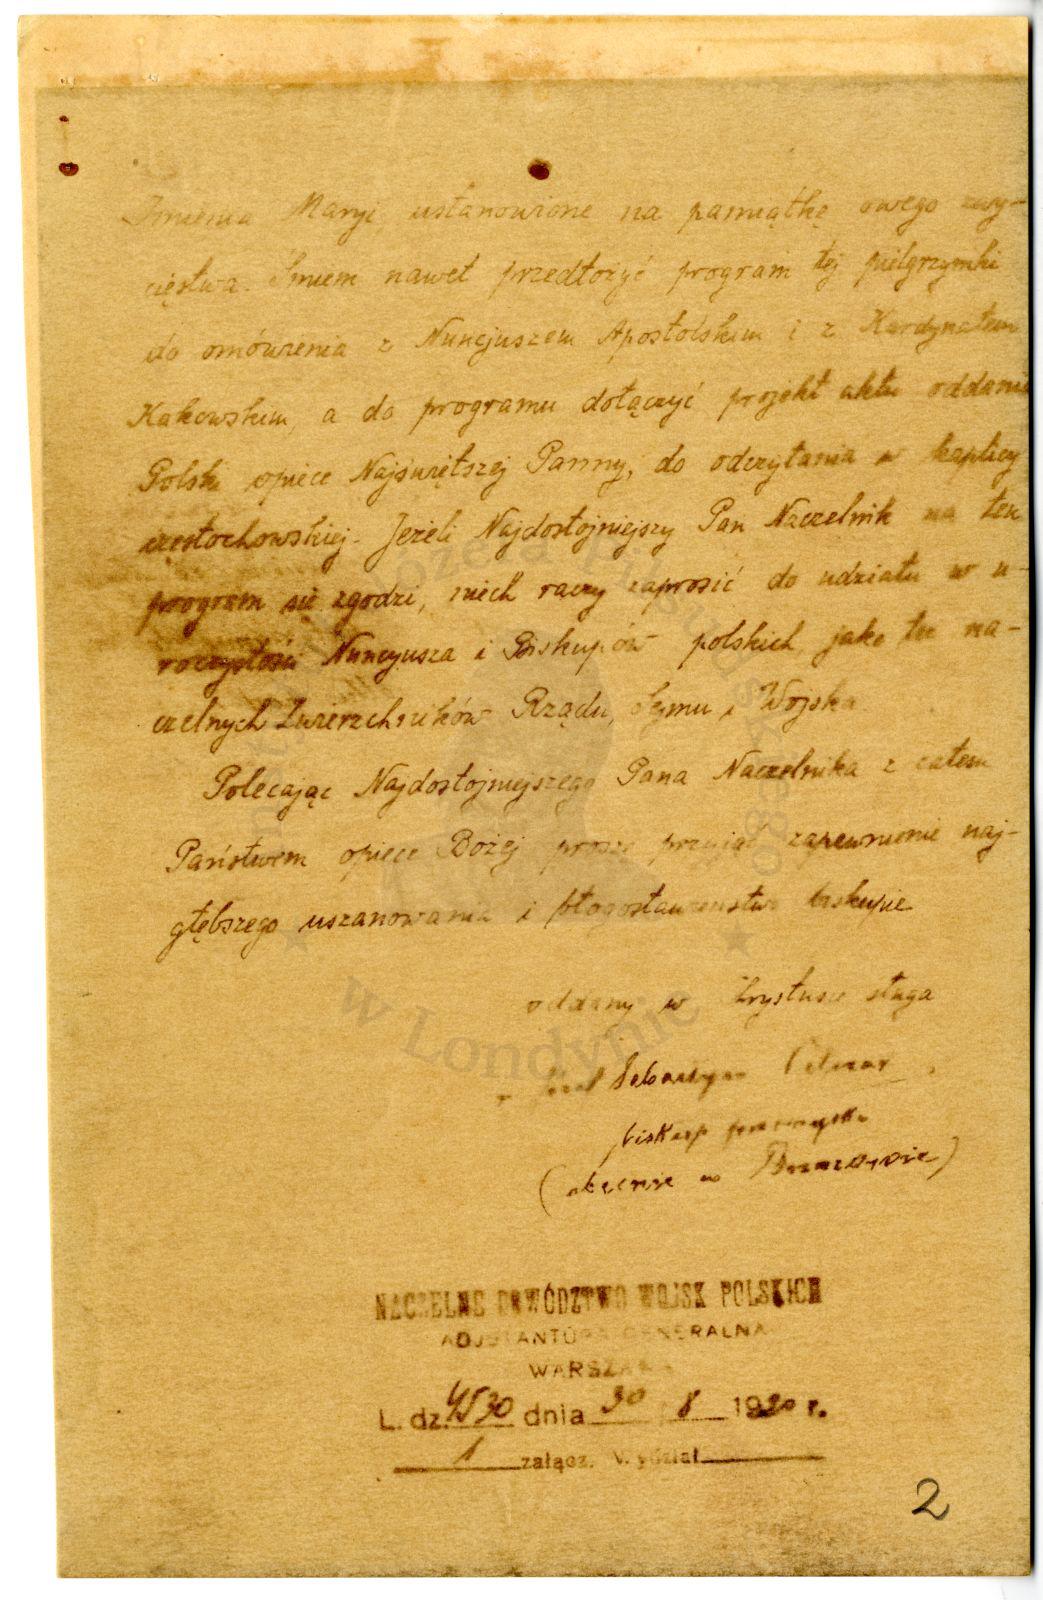 Imienia Maryi, ustanowione na pamiątkę owego zwy-
cięstwa. Śmiem nawet przedłożyć program tej pielgrzymki
do omówienia z Nuncjuszem Apostolskim i z Kardynałem
Kakowskim, a do programu dołączyć projekt aktu oddania
Polski opiece Najświętszej Panny, do odczytania w kaplicy
częstochowskiej. Jeżeli Najdostojniejszy Pan Naczelnik na ten
program się zgodzi, niech raczy zaprosić do udziału w u-
roczystości Nuncyusza i Biskupów polskich, jako też na-
czelnych Zwierzchników Rządu, Sejmu i Wojska.
Polecając Najdostojniejszego Pana Naczelnika z całem
Państwem opiece Bożej proszę przyjąć zapewnienie naj-
głębszego uszanowania i błogosławieństwo biskupie
oddany w Chrystusie sługa
Józef Sebastyan Pelczar
biskup przemyski
(obecnie w Brzozowie)
NACZELNE DOWÓDZTWO WOJSK POLSKICH
ADJUTANTURA GENERALNA
WARSZAWA
L. dz. 4530 dnia 30 8 1920 r.
1 załącz. Wydział
2
Instytut Józefa Piłsudskiego
w Londynie